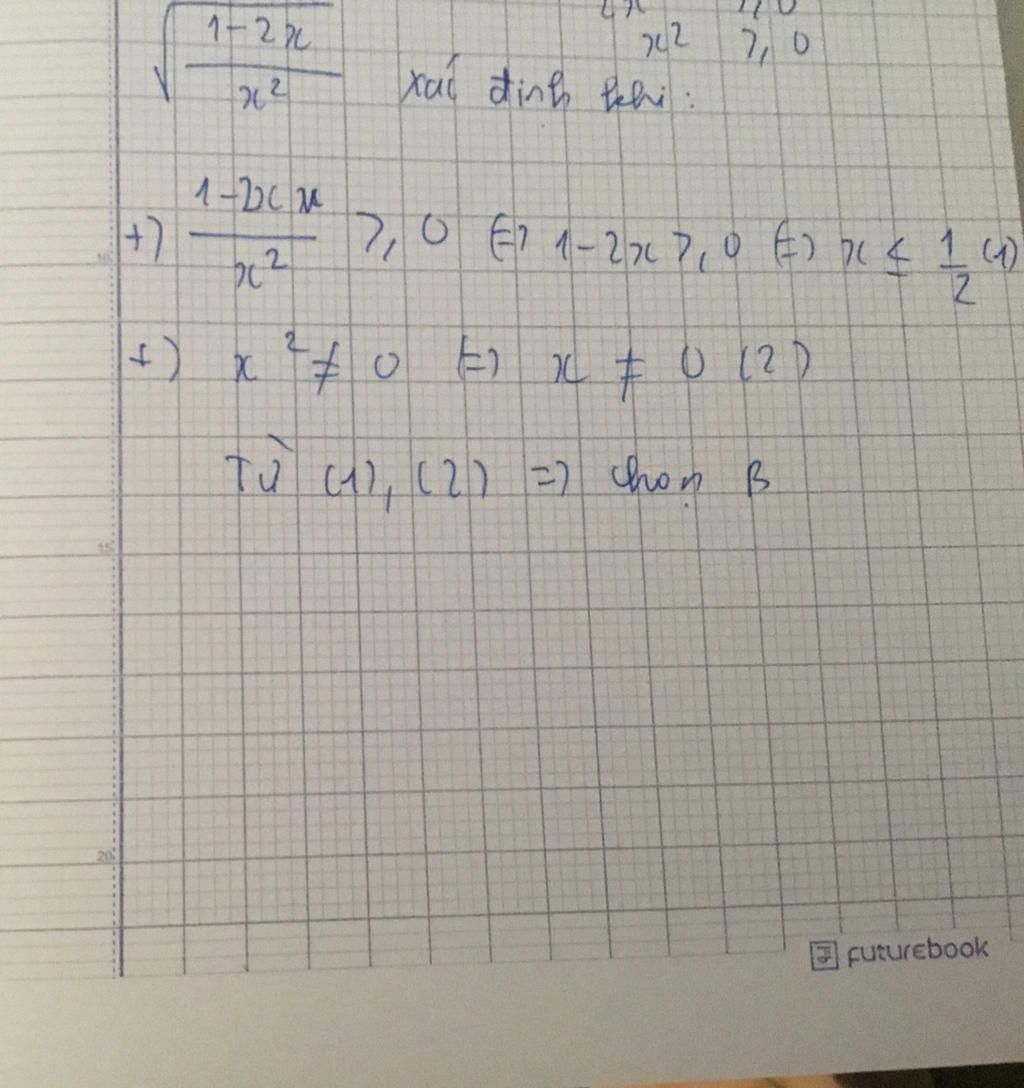 x² ≥ 0
√((1-2x)/x²) xác định khi:
+) (1-2x)/x² ≥ 0 ⇔ 1-2x ≥ 0 ⇔ x ≤ 1/2 (1)
+) x² ≠ 0 ⇔ x ≠ 0 (2)
Từ (1), (2) => chọn B
15
20
futurebook